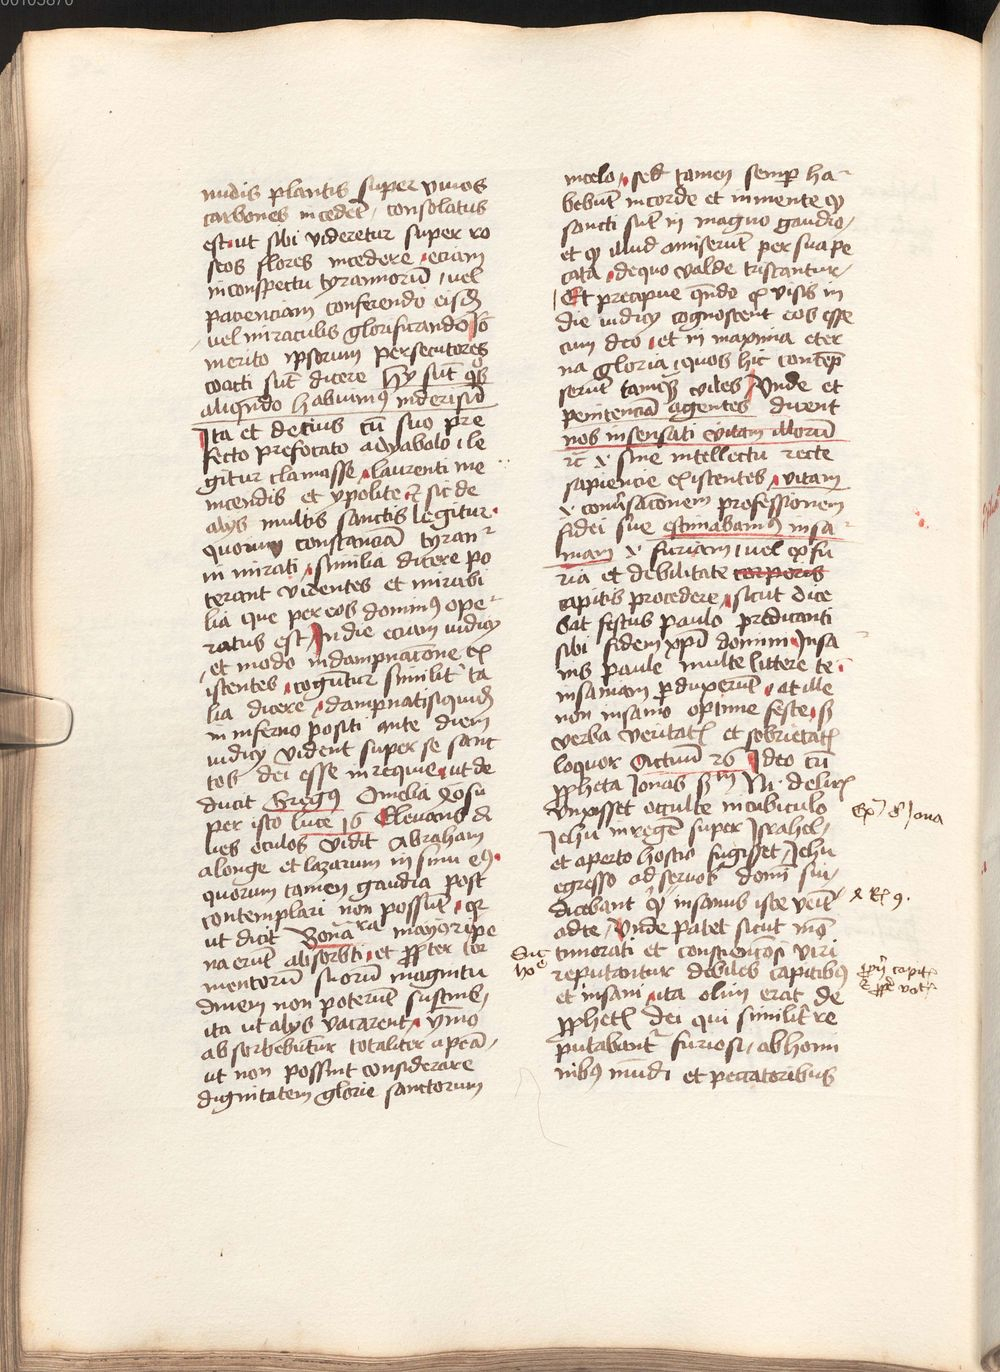 nudis plantis super viuos
carbones incedet, consolatus
est ut sibi videretur super ro
seos flores incedere, eciam
in conspectu tyrannorū, vel
pacienciam conferendo eisdē
vel miraculis glorificando Iō
merito ipsorum persecutores
coacti sūt dicere Hy sūt qͦs
aliqn̄do habuimꝰ in derisū
Ita et decius cū suo pre
fecto prefocato a dyabolo i le
gitur clamasse, laurenti me
incendis et ypolite ⁊ sic de
alys multis sanctis legitur.
quorum constanciā tyran
ni mirati, similia dicere po
terant videntes et mirabi
lia que per eos dominꝰ ope
ratus est In die eciam iudicy
et modo in dampnacōne ex
istentes, cogūtur similit̄ ta
lia dicere, dampnatis quidē
in inferno positi ante diem
iudicy vident super se sanc
tos dei esse in requie, ut de
ducit Gregꝰ Omelia 40 su
per isto luce 16 Eleuans di
ues oculos vidit Abraham
a longe et lazarum in sinu eiꝰ.
quorum tamen gaudia post
contemplari non possūt, qr
ut dicit Bonaͬͣ mayori pe
na erūt absorbti, et ꝓpter tor
mentorū suorum magnitu
dinem non poterūt sustine,
ita ut alys vacarent, ymo
absorbebūtur totaliter a pena,
ut non possint considerare
dignitatem glorie sanctorum
in celo, sed tamen semper ha
bebūt in corde et in mente qͥ
sancti sūt in magno gaudio,
et qͥ illud amiserūt per sua pe
cata, de quo valde tristantur,
Et precipue qn̄do ꝓ visis in
die iudicy cognoscent eos esse
cum deo, et in maxima eter
na gloria, quos hic contēp
serūt tamqͣ viles Vnde et
penitenciā agentes dicent
nos insensati vitam illorū
⁊c̄ .i. sine intellectu recte
sapiencie existentes, vitam
.i. conūsacōnem professionem
fidei sue estimabamꝰ insa
niam .i. furiam, vel ex fu
ria et debilitate corporis
capitis procedere, sicut dice
bat festus paulo predicanti
sibi fidem xpī domini Insa
nis paule multe littere te
insaniam ꝑduxerūt, at ille
non insanio optime feste, sꝫ
verba veritatꝭ et sobrietatꝭ
loquor Actuū 26 Ideo cū
ꝓpheta Ionas
vnxisset oculte in cubiculo
Iehu in regē super Israhel,
et aperto hostio fugisset, Iehu
egresso ad seruos domī sui,
dicebant qͥ insanus iste venit
ad te, Vnde patet sicut mō
timorati et consciencosi viri
reputantur debiles capitibꝰ
et insani, ita olim erat de
ꝓphetꝭ dei qui similit̄ re
putabant̄ furiosi, ab homi
nibꝰ mūdi et peccatoribus
Iona
4 Rꝭ 9.